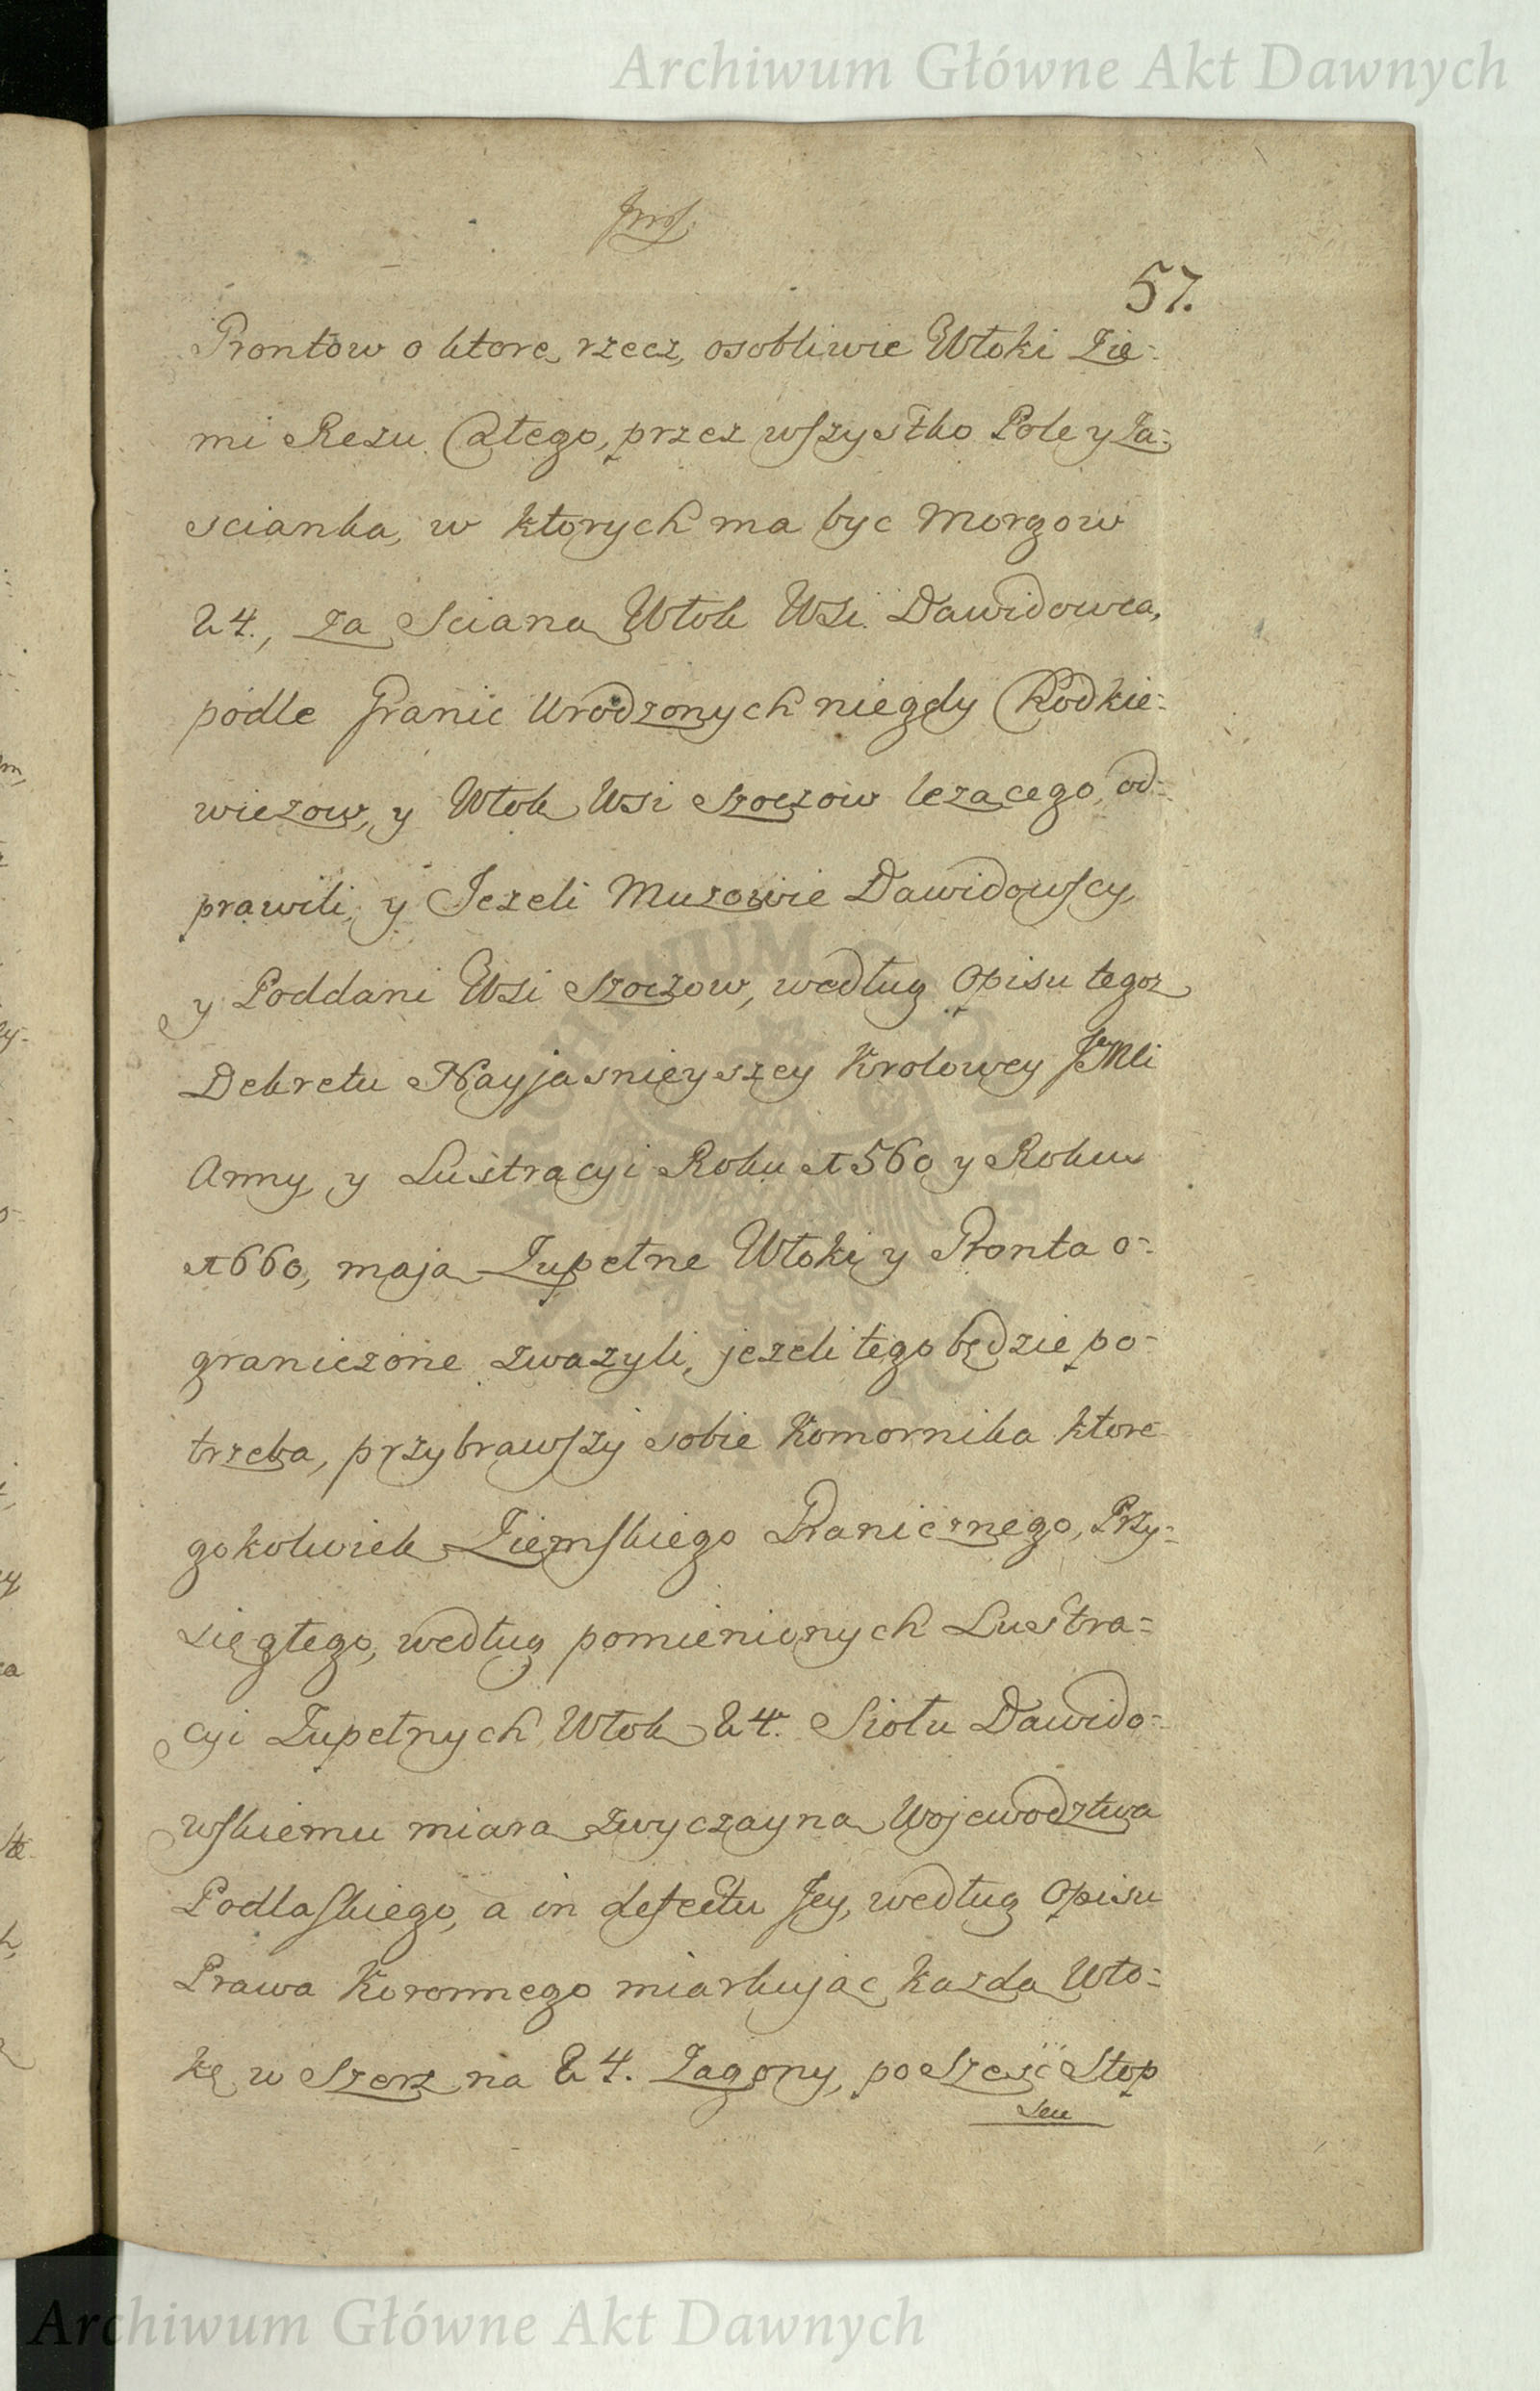 Archiwum Główne Akt Dawnych
57.
Grontow o ktorę rzecz, osobliwie Włoki Zie-
mi Rezu Całego, przez wszystko Pole y Za-
scianka, w ktorych ma byc Morgow
24., za Sciana Włok Wsi Dawidowca,
podle Granic Urodzonych niegdy Chodkie-
wiczow, y Włok Wsi Szoczow lezącego, od-
prawili, y Jezeli Muzowie Dawidowscy,
y Poddani Wsi Szoczow, według Opisu tegoz
Dekretu Nayjasnieyszey Krolowey JeMci
Anny, y Lustracyi Roku 1560 y Roku
1660, maja Zupełne Włoki y Gronta o-
graniczone zwazyli, jezeli tego będzie po-
trzeba, przybrawszy sobie Komornika ktore-
gokolwiek Ziemskiego Granicznego, Przy-
sięgłego, według pomienionych Lustra-
cyi Zupełnych Włok 24. Siołu Dawido-
wskiemu miara zwyczayna Wojewodztwa
Podlaskiego, a in defectu Jey, według Opisu
Prawa Koronnego miarkując kazda Wło-
kę w Szerz na 24. Zagony, po Szesć Stop
Archiwum Główne Akt Dawnych